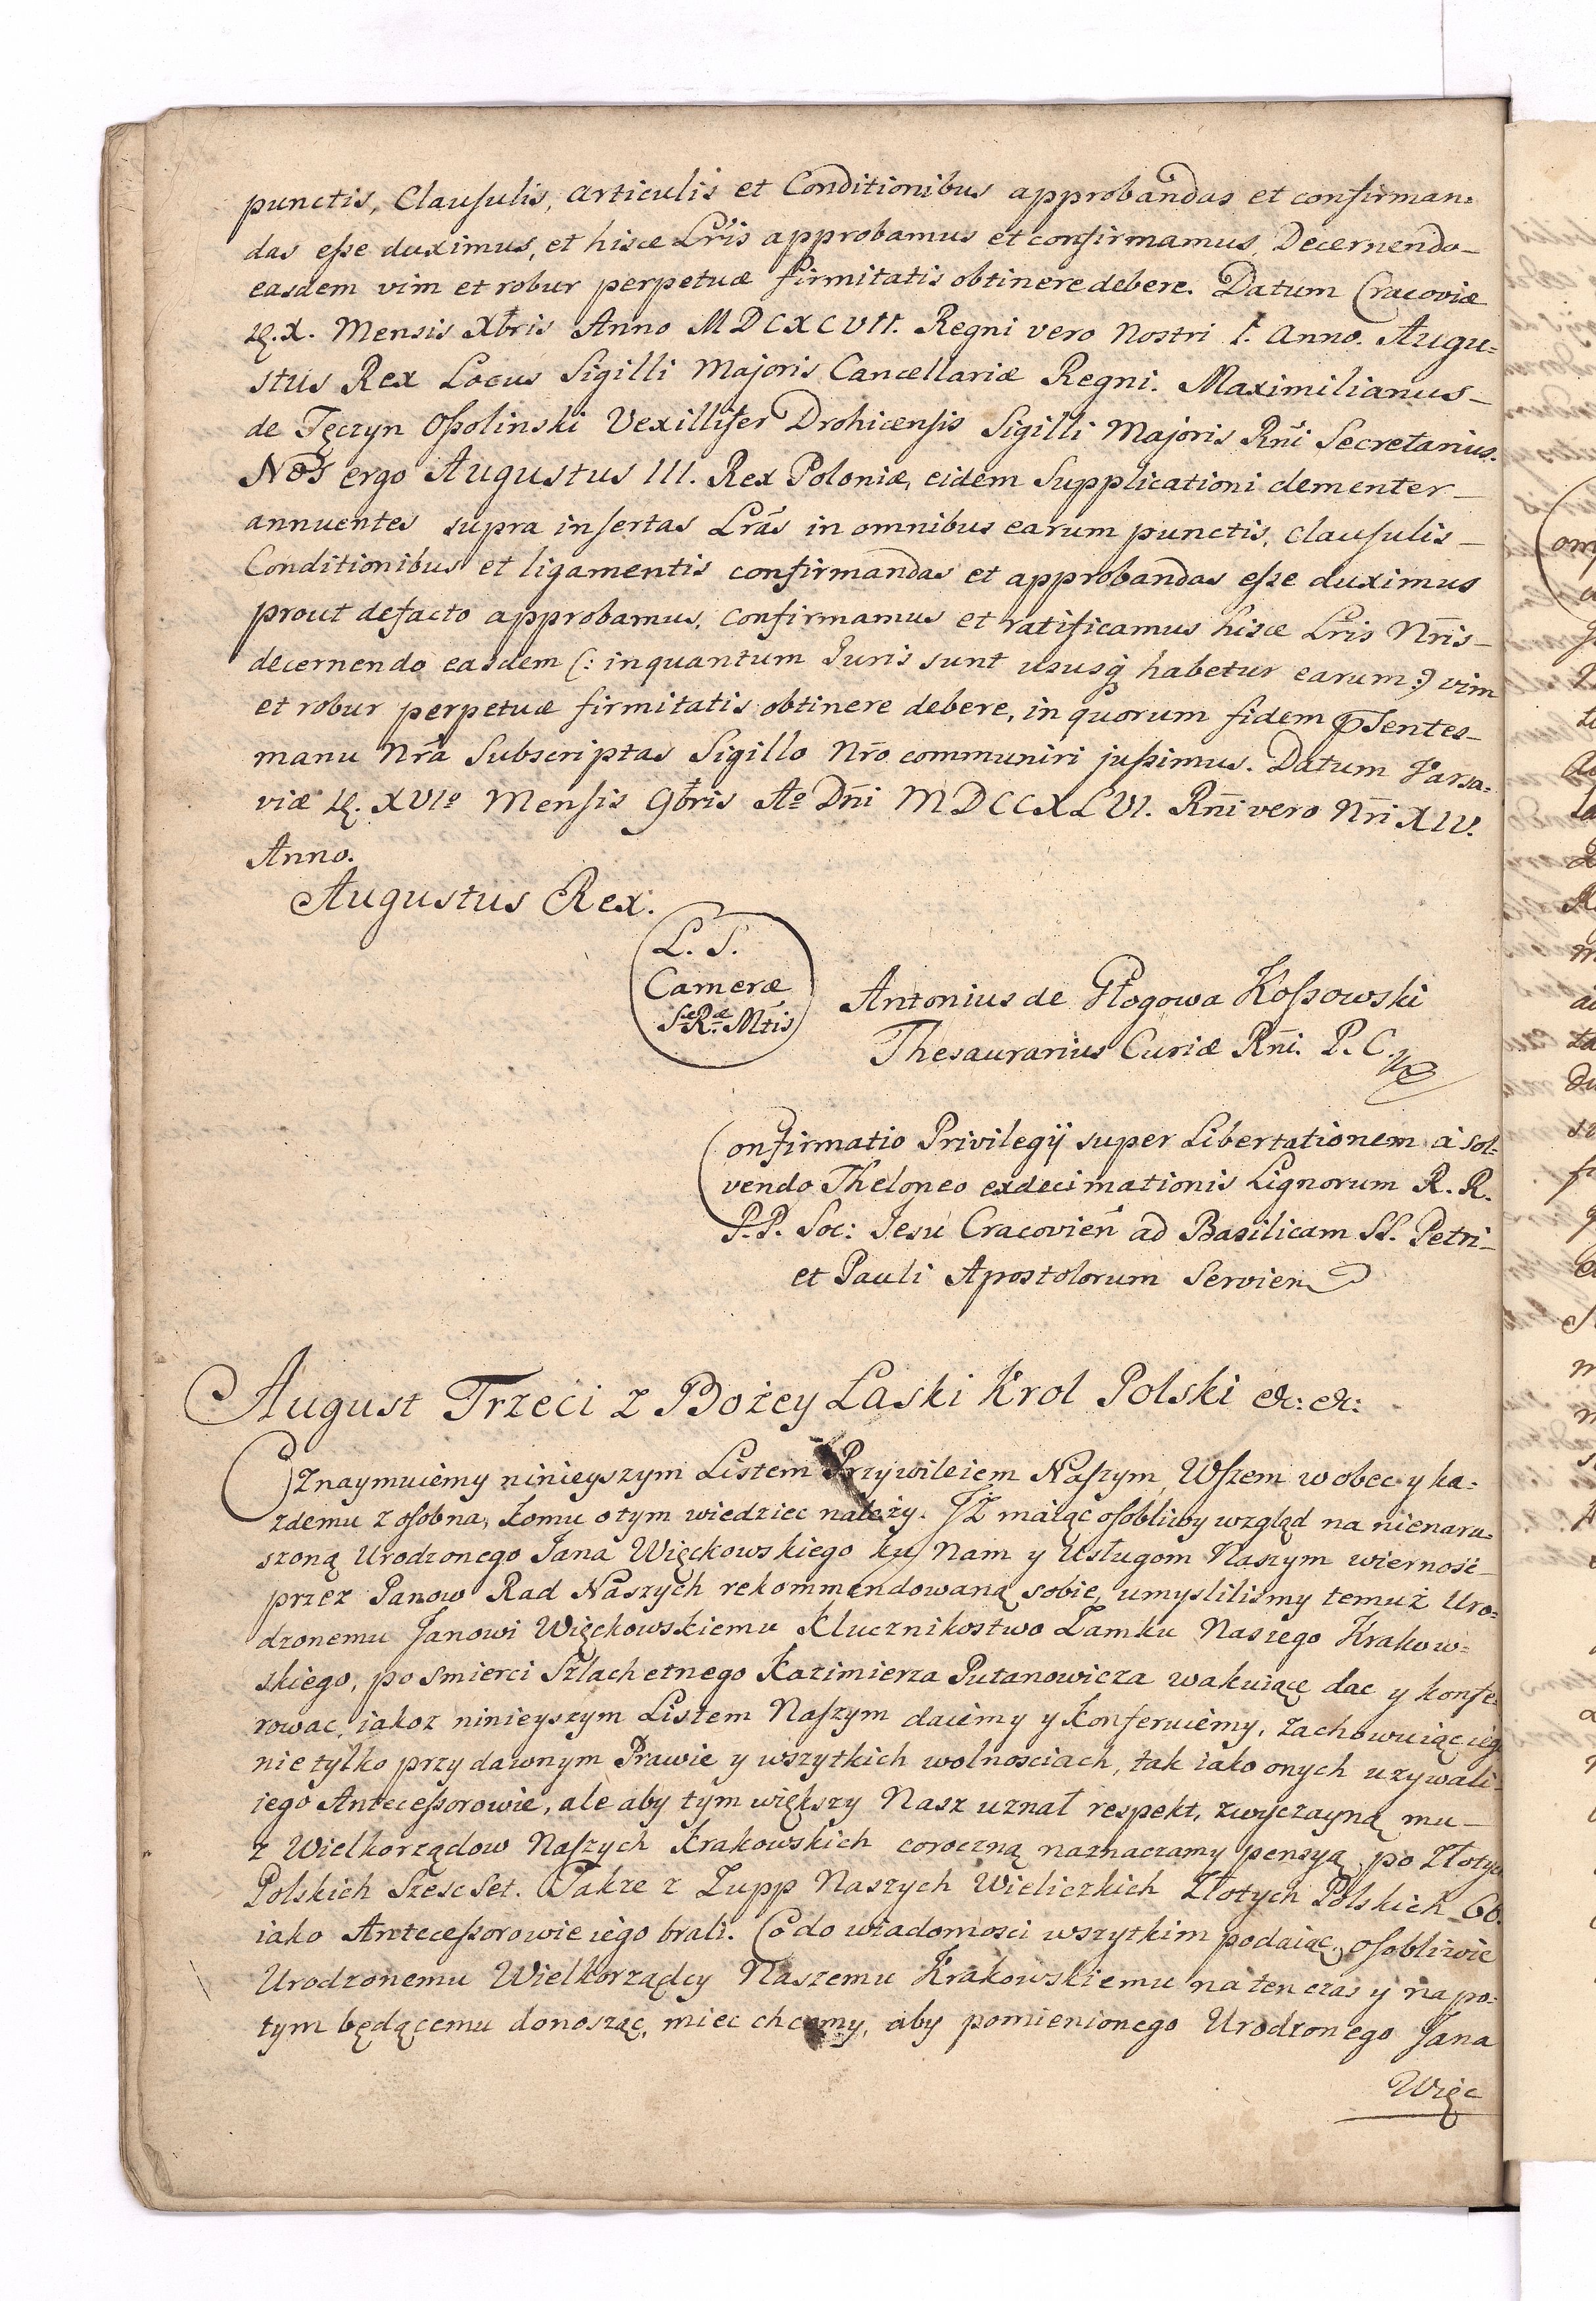 punctis, Clausulis, articulis et Conditionibus approbandas et confirman=
das esse duximus, et hisce Lris approbamus et confirmamus, Decernendo
easdem vim et robur perpetuæ firmitatis obtinere debere. Datum Cracoviæ
X. Mensis Xbris Anno MDCXCVII. Regni vero Nostri I. anno. Augu=
stus Rex Locus Sigilli Majoris Cancellariæ Regni. Maximilianus
de Tęczyn Ossolinski Vexillifer Drohicensis Sigilli Majoris Rni Secretarius.
Nos ergo Augustus III. Rex Poloniæ, eidem Supplicationi clementer
annuentes supra insertas Lras in omnibus earum punctis, clausulis
Conditionibus et ligamentis confirmandas et approbandas esse duximus
prout defacto approbamus, confirmamus et ratificamus hisce Lris Nris
decernendo easdem (: inquantum Juris sunt ususq habetur earum :) vim
et robur perpetuæ firmitatis obtinere debere, in quorum fidem psentes
manu Nra Subscriptas Sigillo Nro communiri jussimus. Datum Varsa=
viæ XVIo Mensis 9bris Ao Dni MDCCXLVI. Rni vero Nri XIV.
Anno.
Augustus Rex.
L. S.
Cameræ
S. Ræ Mtis
Antonius de Głogowa Kossowski
Thesaurarius Curiæ Rni. P. C.
Confirmatio Privilegij super Libertationem à sol=
vendo Theloneo exdecimationis Lignorum R. R.
P.P. Soc: Jesu Cracovien ad Basilicam SS. Petri
et Pauli Apostolorum Servien
August Trzeci z Bożey Laski Krol Polski &: &:
Oznaymuiemy ninieyszym Listem Przywileiem Naszym, Wszem wobec y ka=
zdemu z osobna, komu o tym wiedziec należy. Iż maiąc osobliwy wzgląd na nienaru=
szoną Urodzonego Jana Więckowskiego ku Nam y Usługom Naszym wiernosć
przez Panow Rad Naszych rekommendowaną sobie, umyslilismy temuż Uro=
dzonemu Janowi Więckowskiemu Klucznikostwo Zamku Naszego Krakow=
skiego, po smierci Szlachetnego Kazimierza Putanowicza wakuiącę dac y konfe=
rowac, iakoz ninieyszym Listem Naszym daiemy y konferuiemy, zachowuiąc iego
nie tylko przy dawnym Prawie y wszytkich wolnosciach, tak iako onych uzywali
iego Antecessorowie, ale aby tym większy Nasz uznał respekt, zwyczayną mu
z Wielkorządow Naszych Krakowskich coroczną naznaczamy pensyą po Złotych
Polskich Szesc Set. Takze z Zupp Naszych Wieliczkich Złotych Polskich 60.
iako Antecessorowie iego brali. Co do wiadomosci wszytkim podaiąc, osobliwie
Urodzonemu Wielkorządcy Naszemu Krakowskiemu na ten czas y na po=
tym będącemu donosząc, miec chcemy, aby pomienionego Urodzonego Jana
Więc